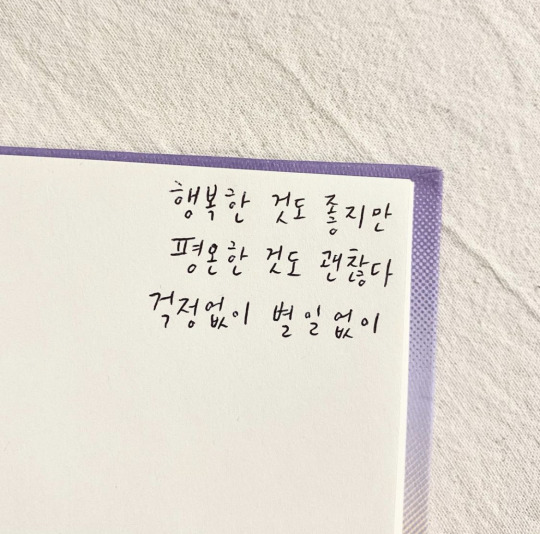 행복한 것도 좋지만
평온한 것도 괜찮다
걱정없이 별일없이